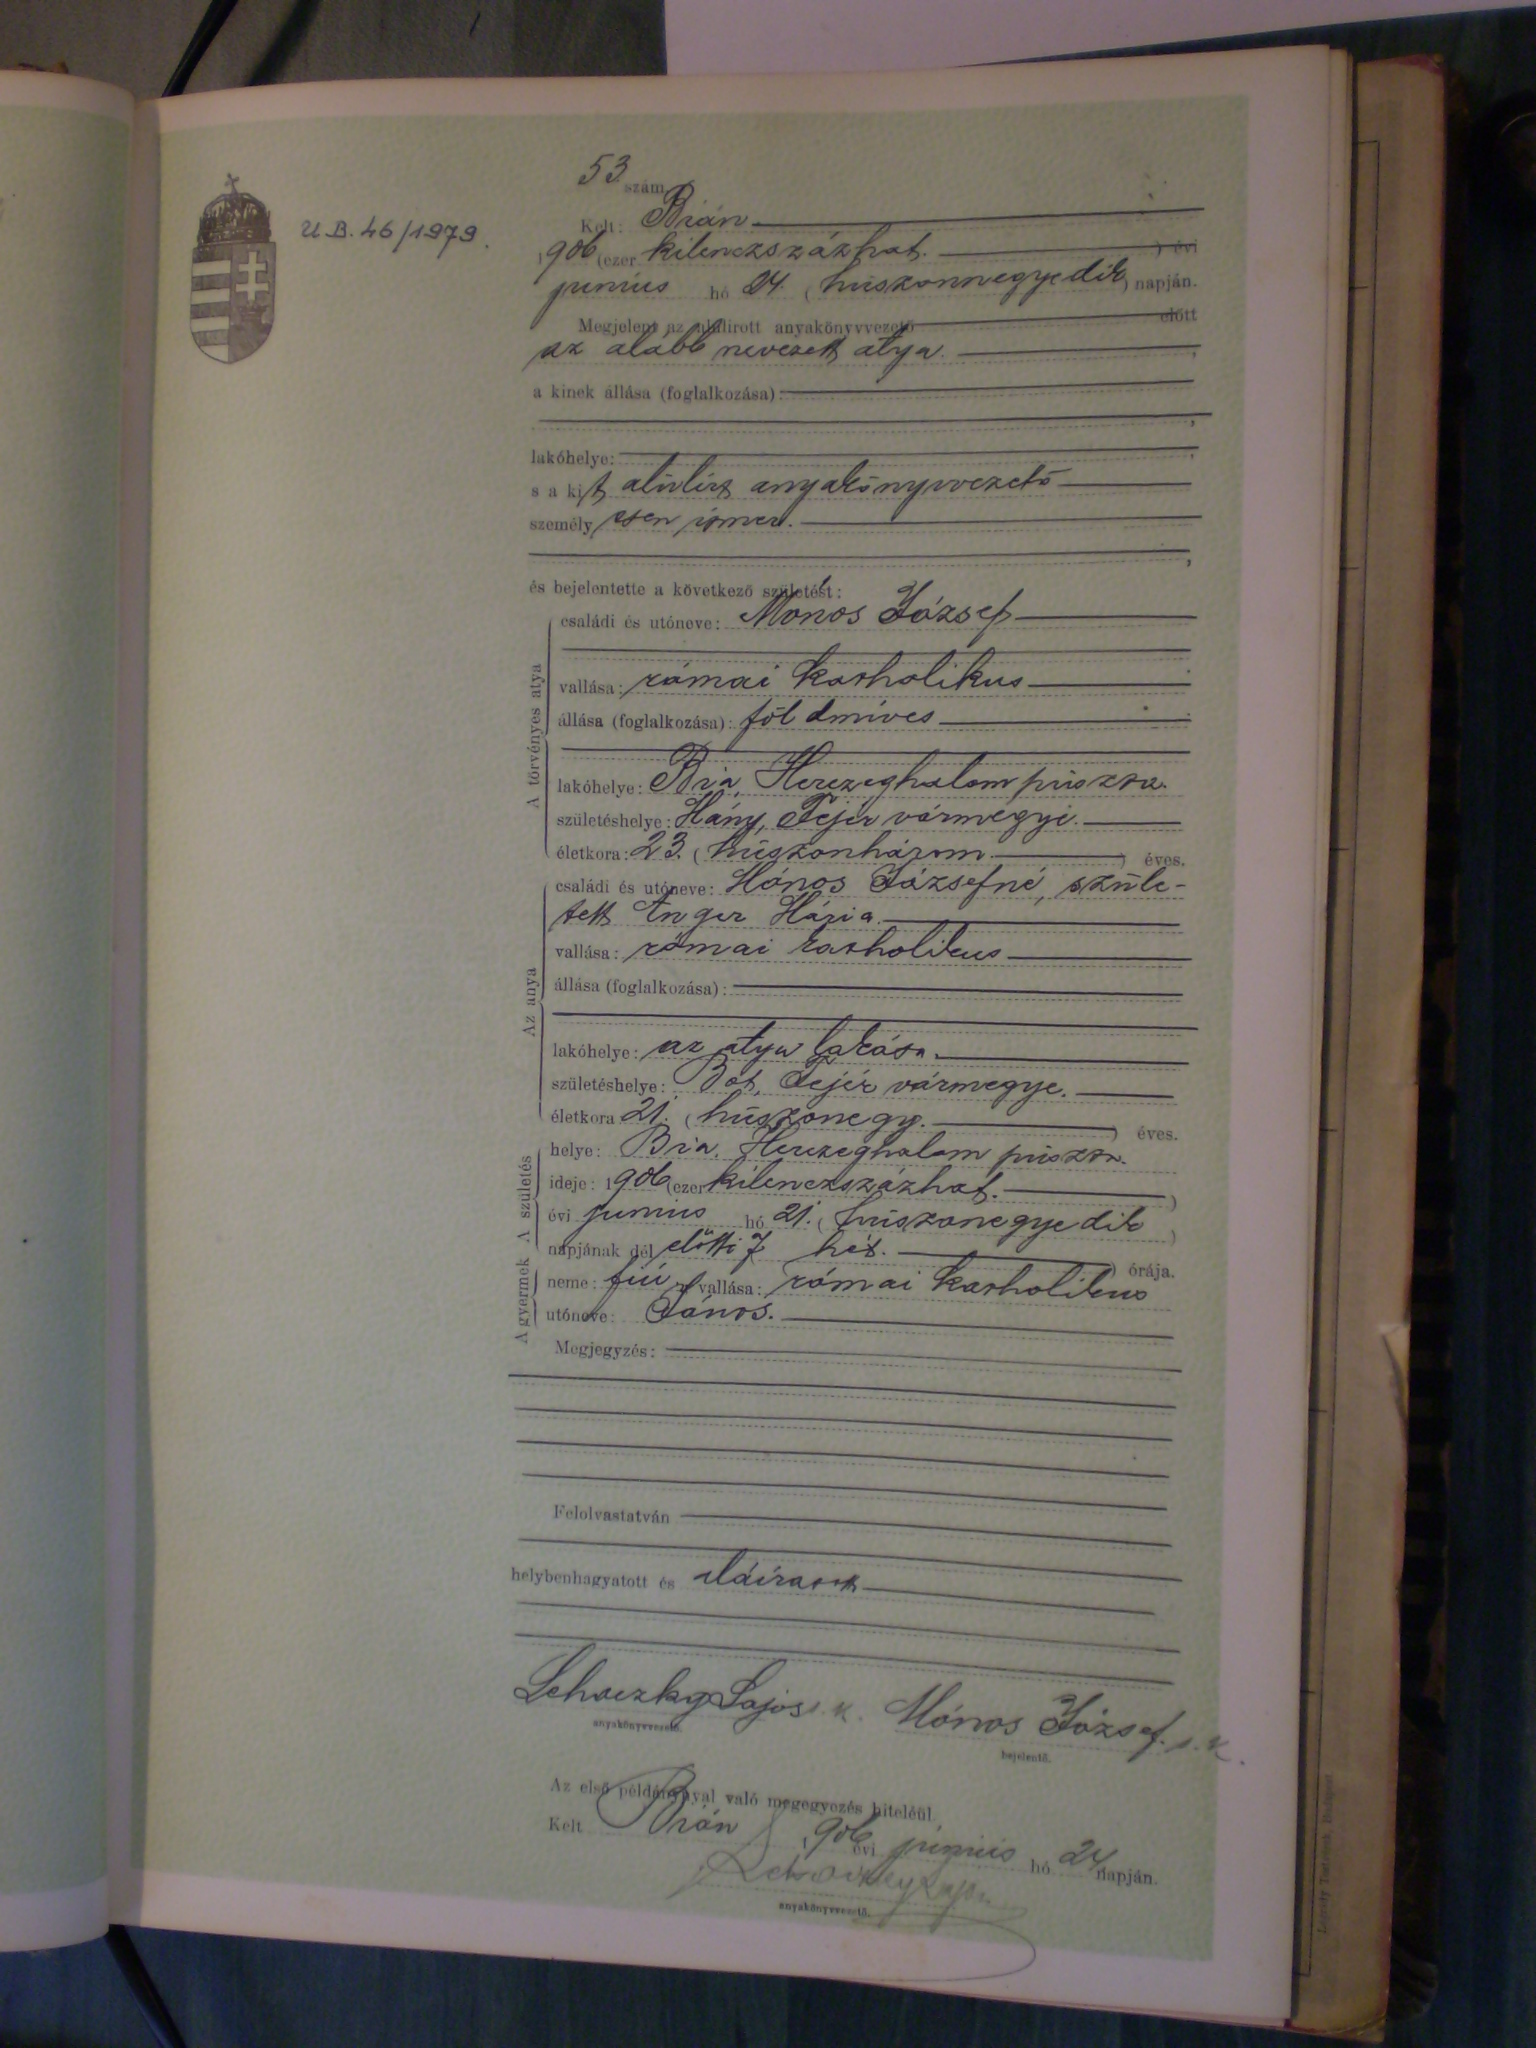 53 szám
U.B. 46/1979.
Kelt: Bián
1906 (ezer kilenczszázhat. ) évi
junius hó 24. ( huszonnegyedik ) napján.
Megjelent az alulirott anyakönyvvezető előtt
az alább nevezett atya.
a kinek állása (foglalkozása):
lakóhelye:
s a kit alulirt anyakönyvvezető
személyesen ismer.
és bejelentette a következő születést:
A törvényes atya
családi és utóneve: Mónos József
vallása: római katholikus
állása (foglalkozása): földmives
lakóhelye: Bia, Herczeghalom puszta.
születéshelye: Mány, Fejér vármegye.
életkora: 23. ( huszonhárom ) éves.
Az anya
családi és utóneve: Mónos Józsefné, szüle-
tett Unger Mária.
vallása: római katholikus
állása (foglalkozása):
lakóhelye: az atya lakása.
születéshelye: Bot, Fejér vármegye.
életkora 21. ( huszonegy. ) éves.
A születés
helye: Bia, Herczeghalom puszta.
ideje: 1906 (ezer kilenczszázhat. )
évi junius hó 21. ( huszonegyedik )
napjának dél előtti 7 hét. ) órája.
A gyermek
neme: fiú vallása: római katholikus
utóneve: János.
Megjegyzés:
Felolvastatván
helybenhagyatott és aláiratott
Lehoczky Lajos s. k. Mónos József. s. k.
anyakönyvvezető. bejelentő.
Az első példánnyal való megegyezés hiteléül.
Kelt Bián 1906 évi junius hó 24 napján.
Lehoczky Lajos
anyakönyvvezető.